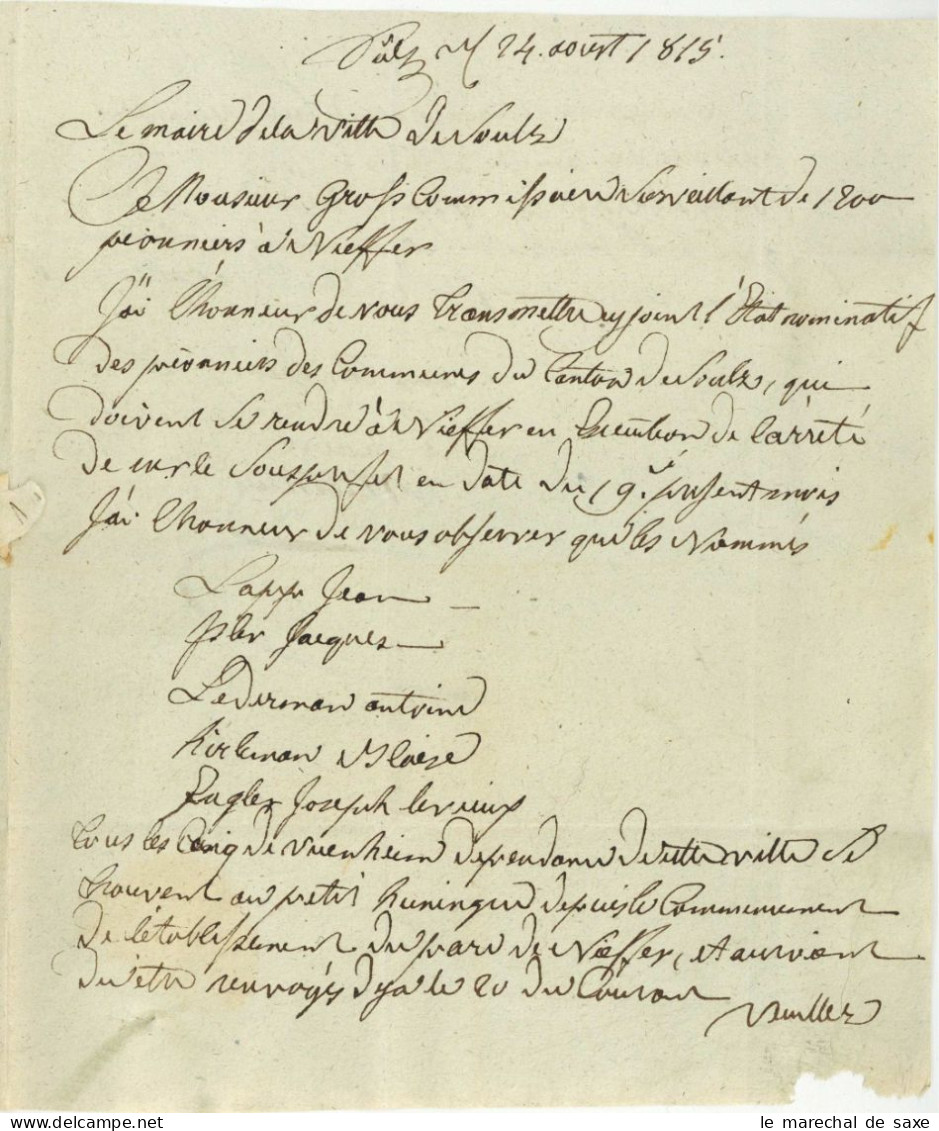 Sulz 24. aoust 1815.
Le maire de la ville de Soultz
A Monsieur Gross Commissaire Surveillant de 1200
pionniers à
J'ai l'honneur de vous transmettre cy joint l'Etat nominatif
des pionniers des Communes du Canton de Soultz, qui
doivent se rendre à en Execution de l'arrêté
de mr le Sous prefet en date du 19. présent mois
J'ai l'honneur de vous observer que les Nommés
Lapp Jean
Isler Jacques
Lederman antoine
Kirleman Blaise
Engler Joseph le vieux
tous les Cinq de Wuenheim dependance de cette ville se
trouvent au petit huningue depuis le Commencement
de l'établissement du parc de , et auroient
du être renvoyés deja le 20 du Courant
Veuillez
le marechal de saxe